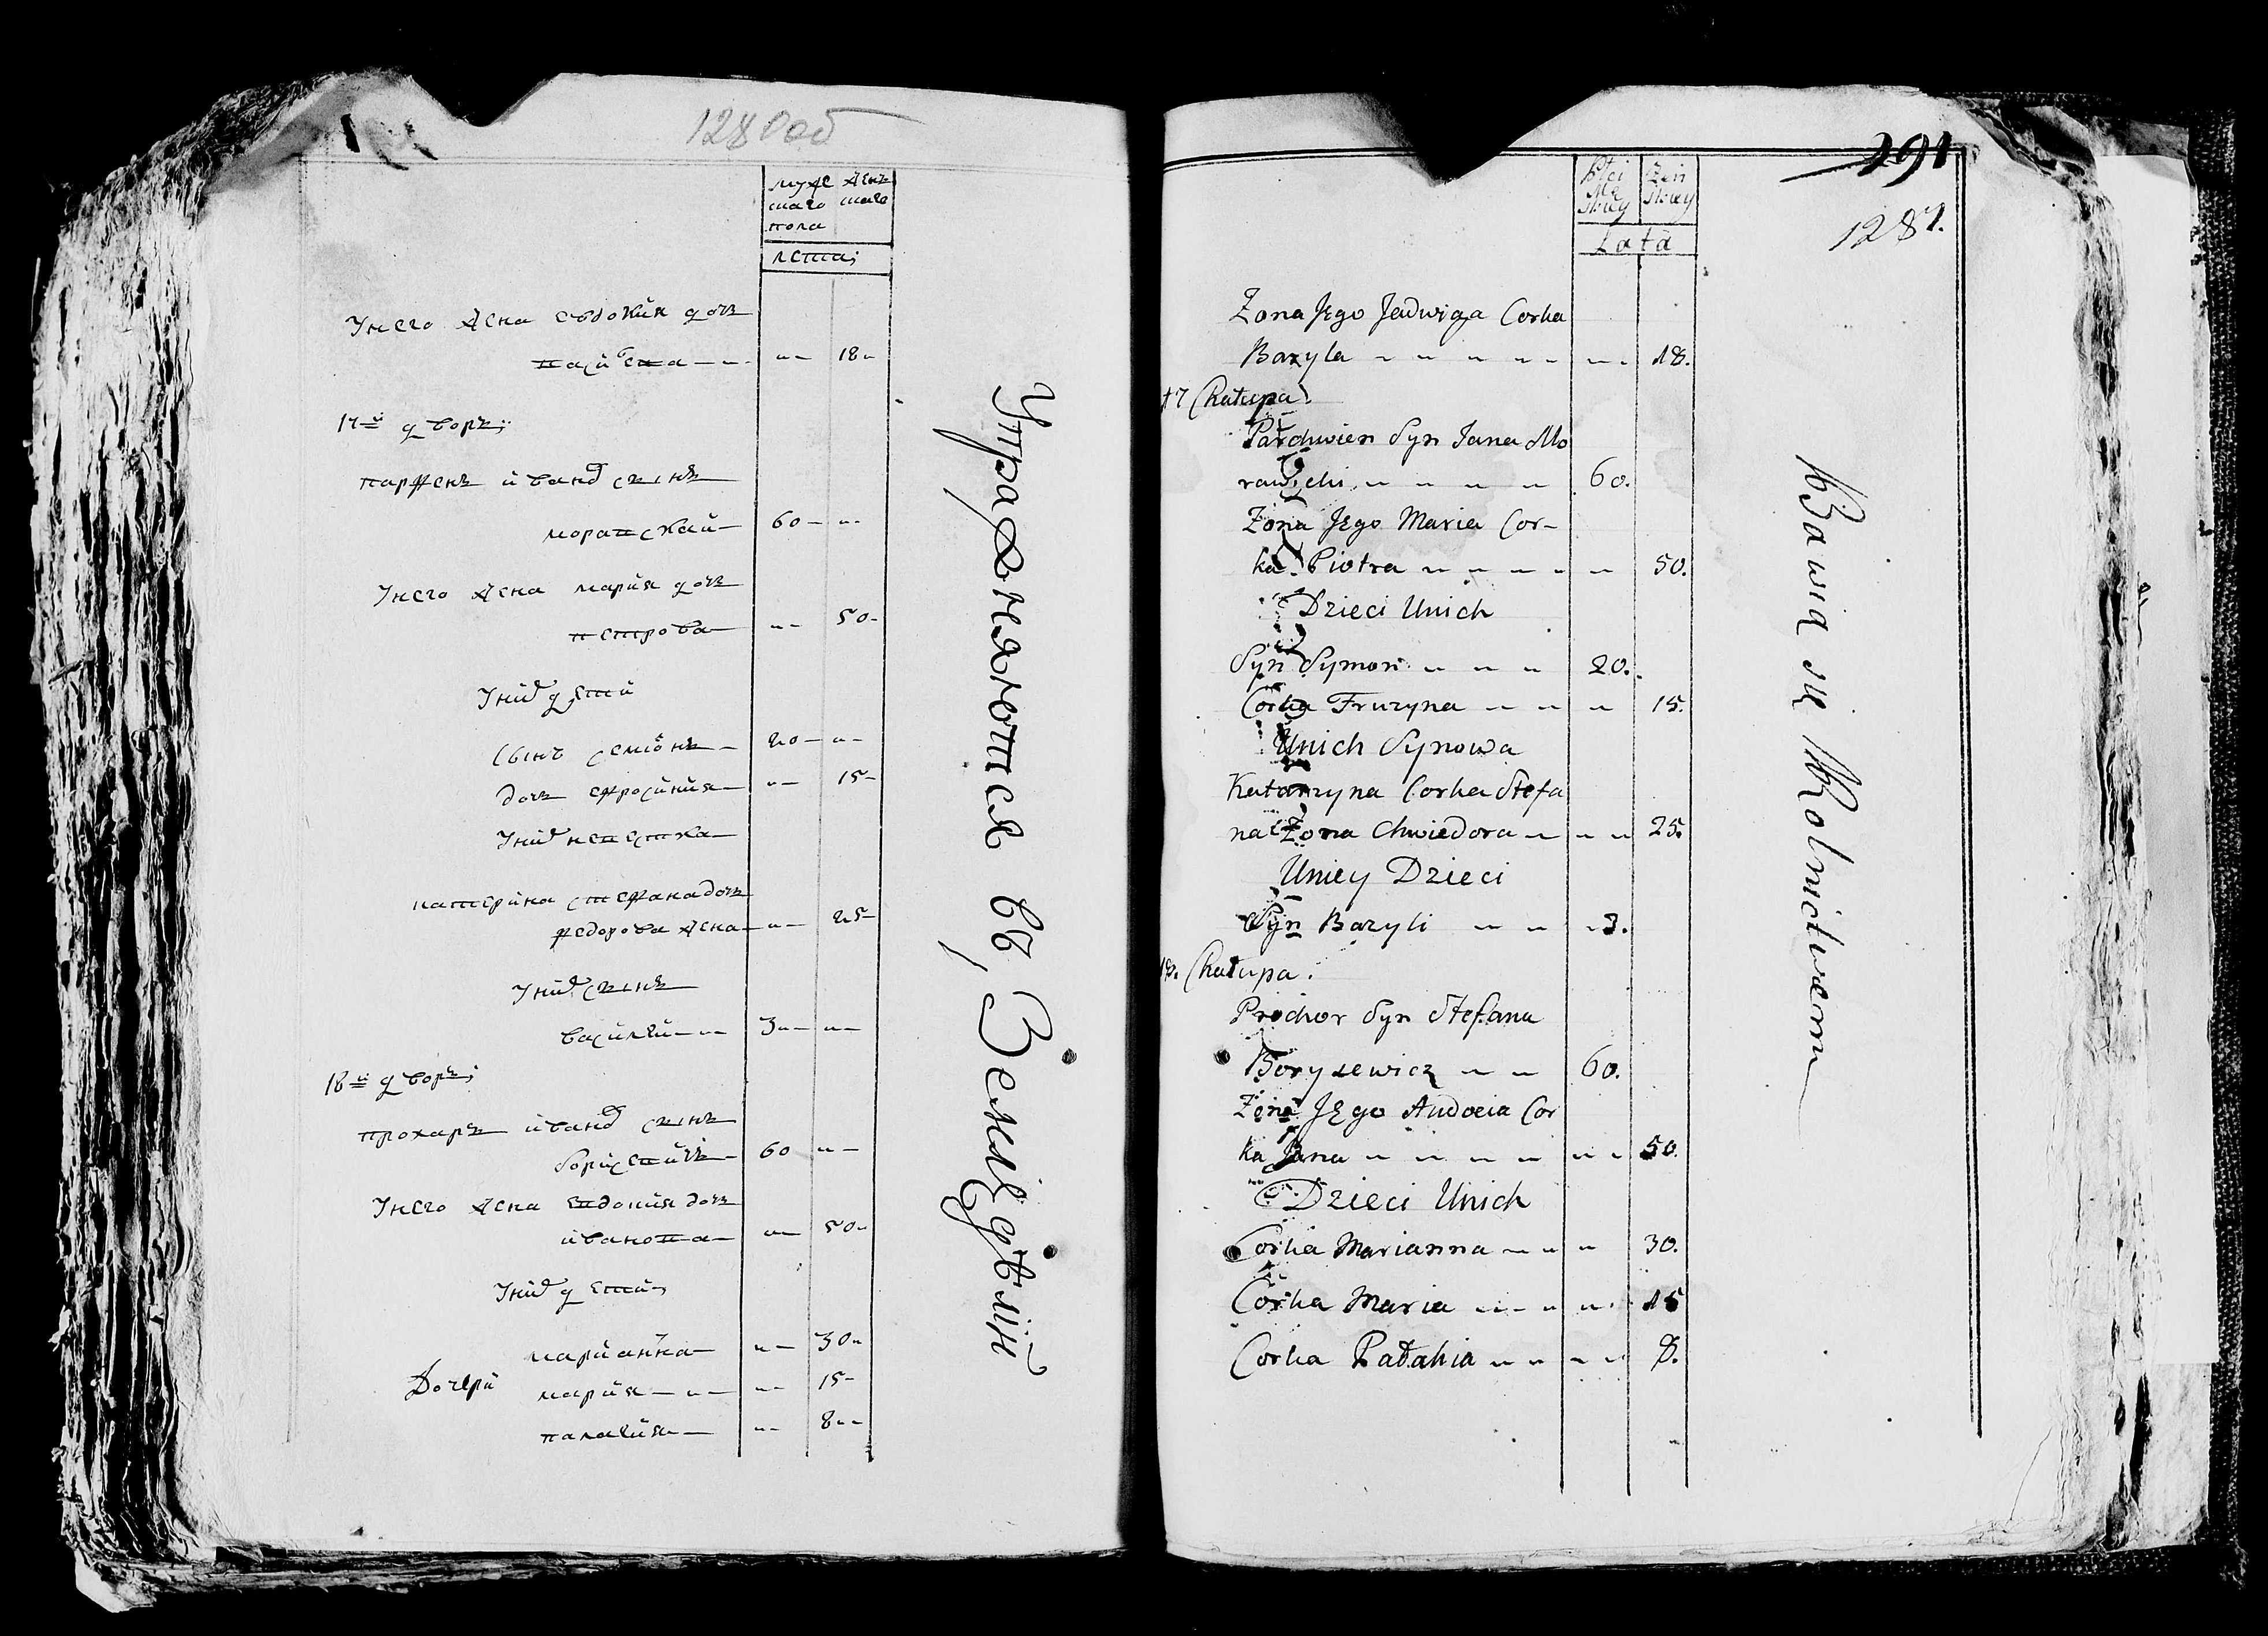 1280об
муже женъ
скаго скаго
пола
лета;
Унего жена евдокия дочъ
василева 18
17й дворъ;
парфенъ иванов сынъ
моравский 60
Унего жена мария дочъ
петрова 50
Уних дети
сынъ семионъ 20
дочъ ефросиния 15
Уних невестка
катерина стефана дочъ
федорова жена 25
Уних сынъ
василей 3
18й дворъ;
прохаръ иванов сынъ
борисевичъ 60
Унего жена евдокия дочъ
иванова 50
Уних дети
марианна 30
Дочери мария 15
палагия 8
Упражняются въ Земледѣлiи
291
1281.
Płci Żeń
Mę
skiey skiey
Lata
Żona Jego Jadwiga Corka
Bazyla 18.
17 Chałupa.
Parchwien Syn Jana Mo
rawski 60.
Żona Jego Maria Cor-
ka Piotra 50.
Dzieci Unich
Syn Symon 20.
Corka Fruzyna 15.
Unich Synowa
Katarzyna Corka Stefa
na Żona Chwiedora 25.
Uniey Dzieci
Syn Bazyli 3.
18. Chałupa.
Prochor Syn Stefana
Borysewicz 60.
Żona Jego Audocia Cor
ka Jana 50.
Dzieci Unich
Corka Marianna 30.
Corka Maria 15
Corka Pałahia 8.
Bawią się Rolnictwem